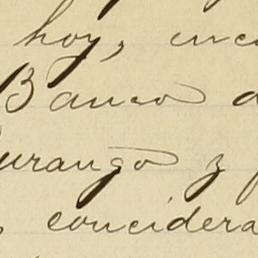 hoy, enco
Banco d
Durango y
concidera